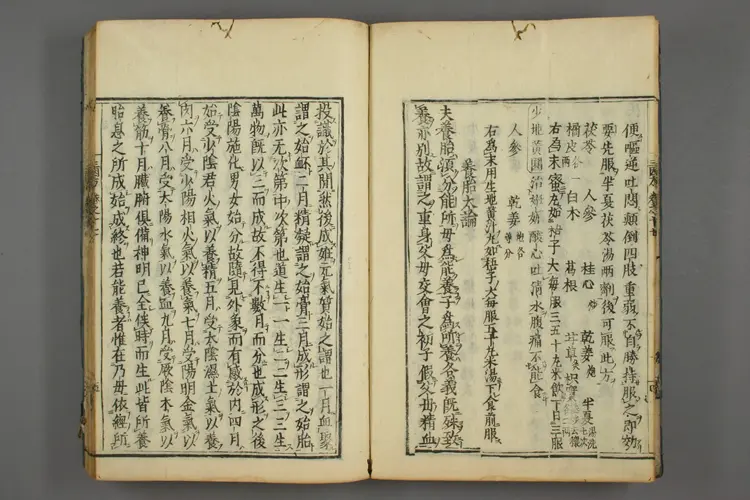 便嘔逆吐悶顛倒四肢重弱不自勝持服之即効
要先服半夏茯苓湯兩劑後可服此方
茯苓 人參 桂心 乾姜 半夏
橘皮 白朮 葛根 甘草
右為末蜜丸如梧子大每服三五十丸米飲下日三服
地黃圓治妊娠酸心吐清水腹痛不能食
人參 乾姜 等分
右為末用生地黃汁丸如梧子大每服五十丸米湯下食前服
養胎大論
夫養胎須分能所母為能養子為所養名義既殊致
養亦別故謂之重身父母交會之初子假父母精血
投識於其間然後成妊元氣質始之謂也一月血聚
謂之始胚二月精凝謂之始膏三月成形謂之始胎
此亦無次第中次第也道生一一生二二生三三生
萬物既以三而成故不得不數月而分也成形之後
陰陽施化男女始分故隨見外象而有感於內四月
始受少陰君火氣以養精五月受太陰濕土氣以養
肉六月受少陽相火氣以養氣七月受陽明金氣以
養骨八月受太陽水氣以養血九月受厥陰木氣以
養筋十月臟腑俱備神明已全俟時而生此皆所養
胎息之所成始成終也若能養者惟在乃母依經所